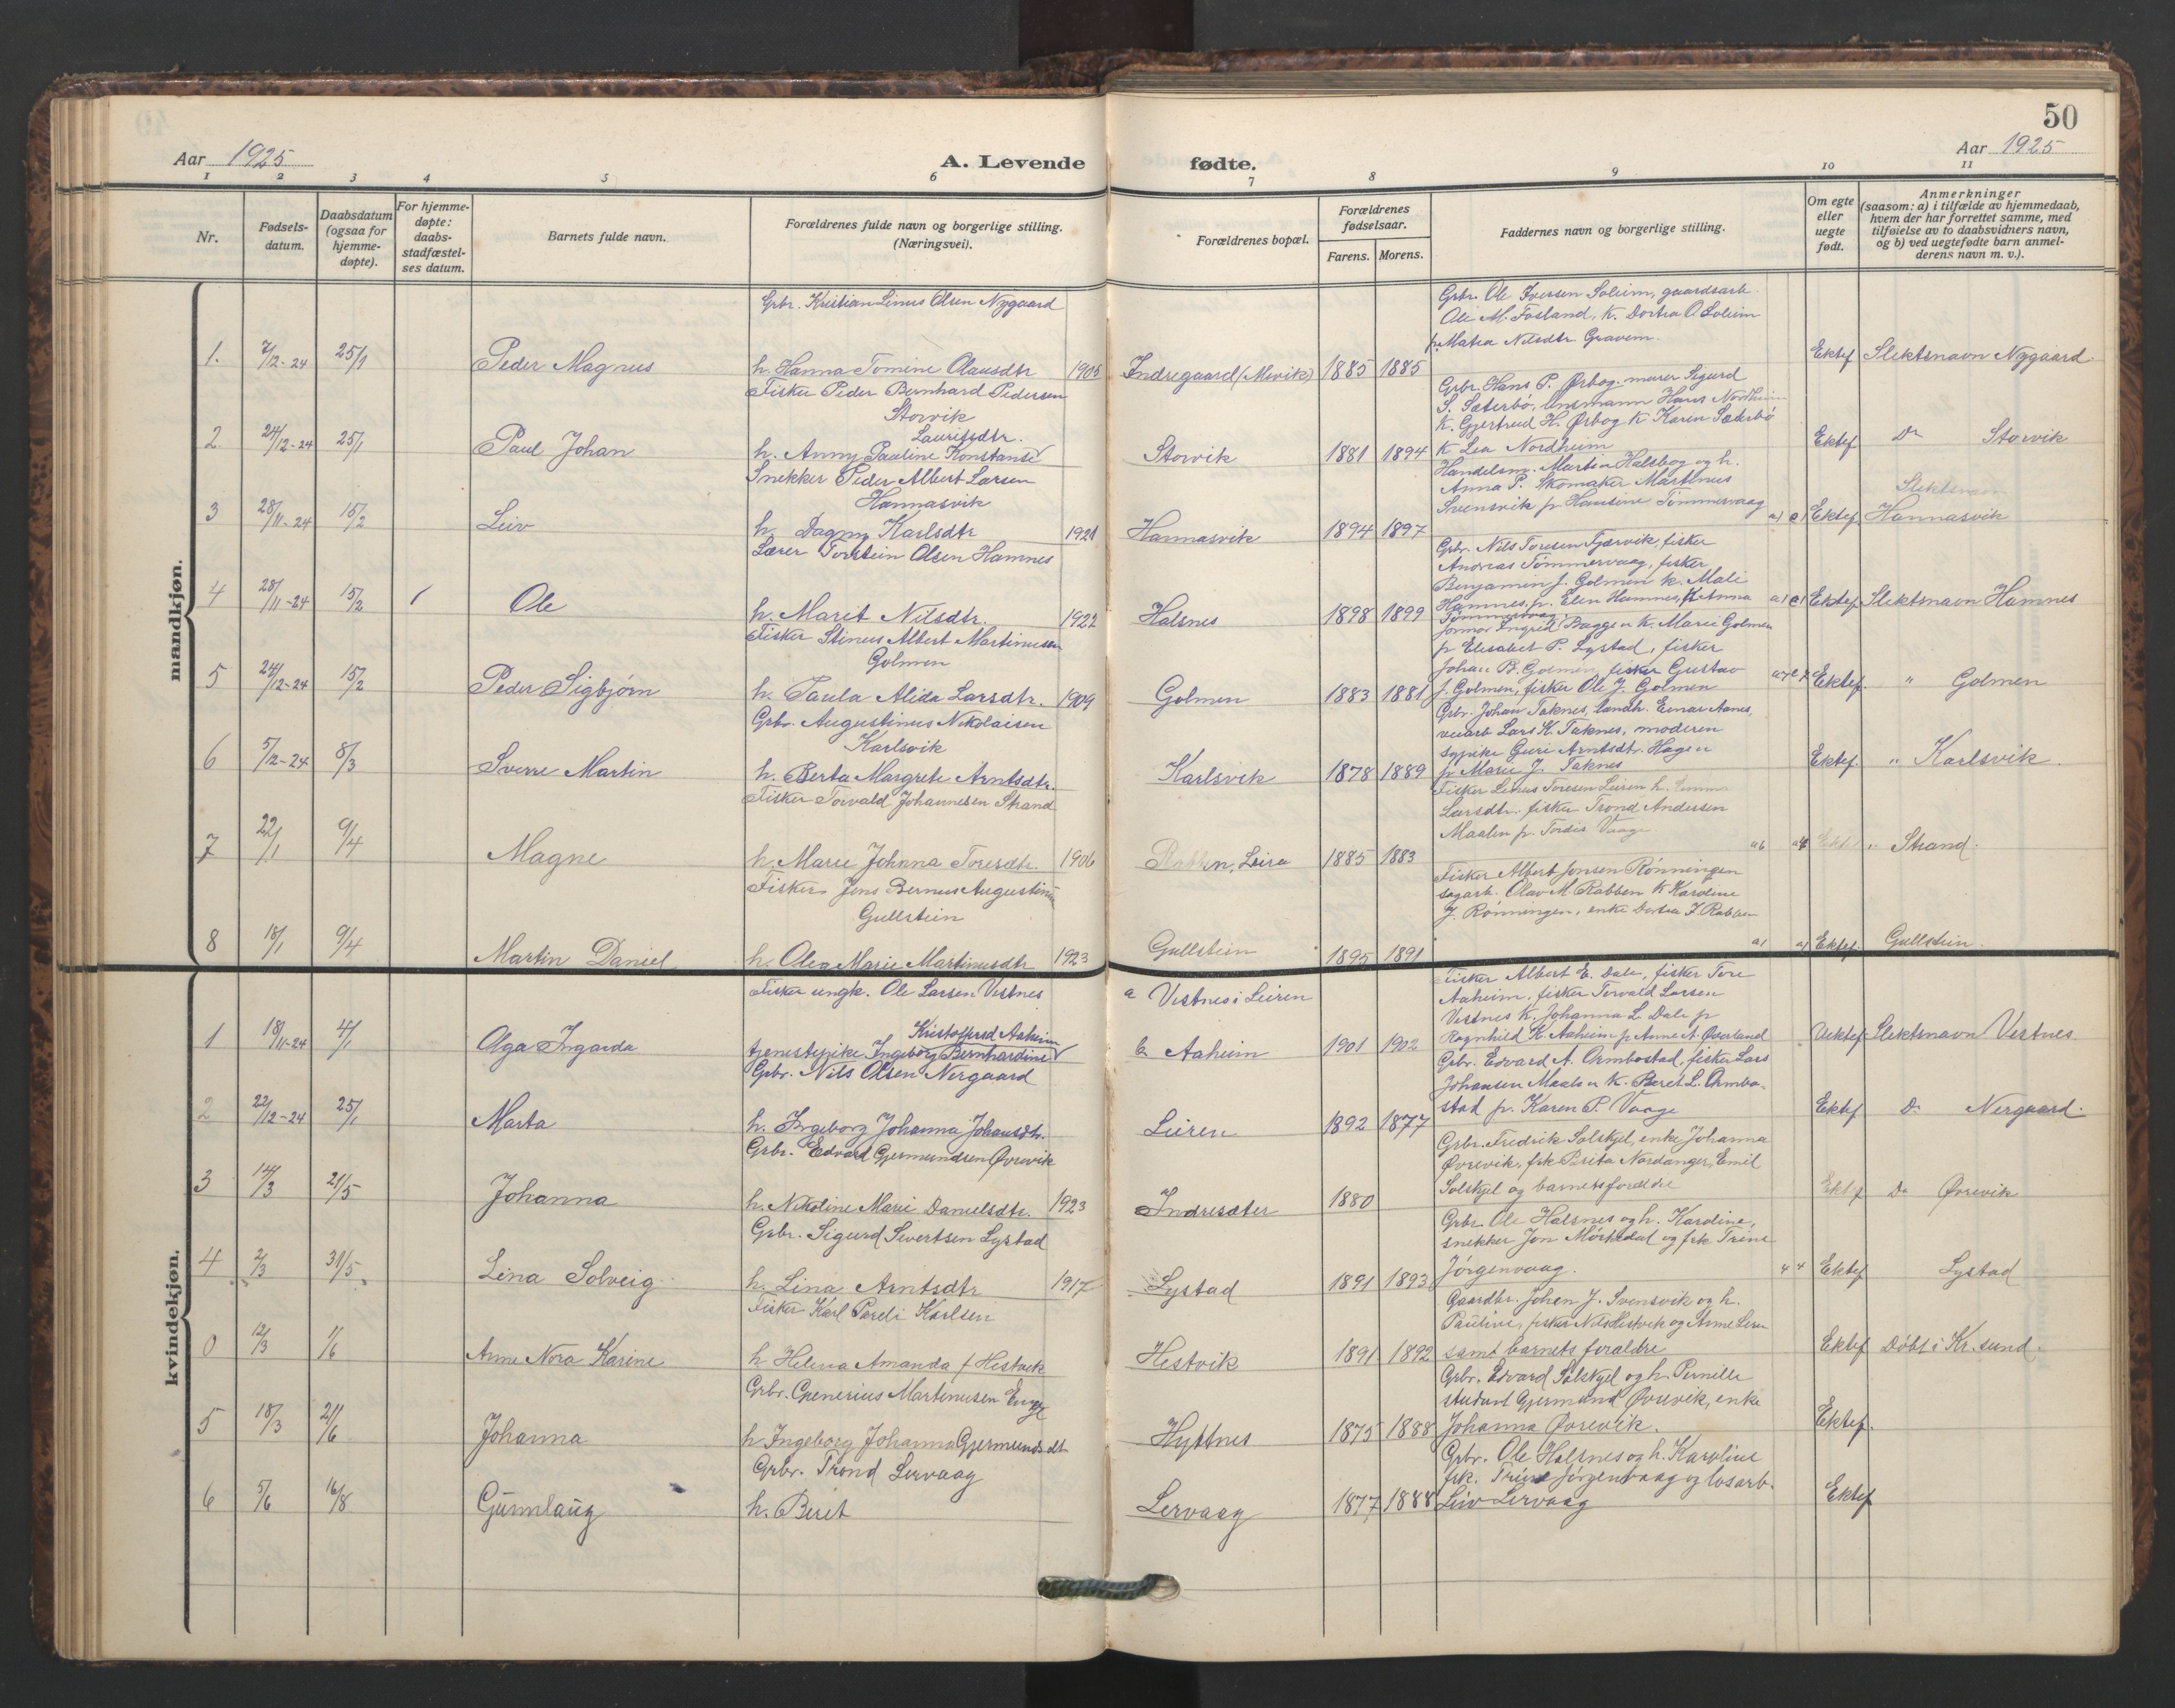 50
Aar 1925
A. Levende fødte.
Aar 1925
1 2 3 4 5 6 7 8 9 10 11
Nr.
Fødsels-
datum.
Daabsdatum
(ogsaa for
hjemme-
døpte).
For hjemme-
døpte:
daabs-
stadfæstel-
ses datum.
Barnets fulde navn.
Forældrenes fulde navn og borgerlige stilling.
(Næringsvei).
Forældrenes bopæl.
Forældrenes
fødselsaar.
Farens. Morens.
Faddernes navn og borgerlige stilling.
Om egte
eller
uegte
født.
Anmerkninger
(saasom: a) i tilfælde av hjemmedaab,
hvem der har forrettet samme, med
tilføielse av to daabsvidners navn,
og b) ved uegtefødte barn anmel-
derens navn m. v.).
mandkjøn.
Grbr. Kristian Linus Olsen Nygaard
Grbr. Ole Iversen Soleim, gaardsarb.
Ole M. Fosland, k. Dortea O. Soleim
p. Matea Nilsdtr. Gravem.
1. 7/12-24 25/1 Peder Magnus h. Hanna Tomine Olausdtr 1905 Indregaard (Msvik) 1885 1885 Ektef Slektsnavn Nygaard.
Fisker Peder Bernhard Pedersen
Storvik
Lauritsdtr.
Grbr. Hans P. Ørbog. murer Sigurd
S. Sæterbø, lensmann Hans Nordheim
k. Gjertrud H. Ørbog k Karen Sæterbø
k Lea Nordheim
2 24/12-24 25/1 Paul Johan h. Anny Pauline Konstanse Storvik 1881 1894 Ektef Do Storvik
Snekker Peder Albert Larsen
Hannasvik
Handelsm. Martin Halsbog og h.
Anna P. Skomaker Martinus
Svensvik p Hansine Tømmervaag
Slektsnavn
3 28/11-24 15/2 Leiv h. Dagny Karlsdtr 1921 Hannasvik 1894 1897 Ektef Hannasvik
Lærer Torstein Olsen Hamnes
Grbr. Nils Toresen Tjærvik, fisker
Andreas Tømmervaag, fisker
Benjamin J. Golmen k. Mali
Hamnes, p. Elen Hamnes, k Anna
Tømmervaag
4 28/11-24 15/2 Ole h. Marit Nilsdtr. 1922 Halsnes 1898 1899 Ektef Slektsnavn Hamnes
Fisker Stinus Albert Martinusen
Golmen
Jormor Ingrid Bagge k. Marie Golmen
p Elisabet P. Lystad, fisker
Johan B. Golmen, fisker Gustav
J. Golmen, fisker Ole J. Golmen
5 24/12-24 15/2 Peder Sigbjørn h. Paula Alida Larsdtr. 1909 Golmen 1883 1881 Ektef. " Golmen
Grbr. Augustinus Nikolaisen
Karlsvik
Grbr. Johan Taknes, landh. Einar Aanes,
veiarb Lars K. Taknes, moderen
sypike Guri Arntsdtr. Hagen
p Marie J. Taknes
6 5/12-24 8/3 Sverre Martin h. Berta Margrete Arntsdtr. Karlsvik 1878 1889 Ektef. " Karlsvik.
Fisker Torvald Johannesen Strand
Fisker Linus Toresen Leiren h.
Larsdtr. fisker Trond Andersen
Maalen p. Tordis Vaage.
7 22/1 9/4 Magne h. Marie Johanna Toresdtr. 1906 Rabben, Leira 1885 1883 Ektef " Strand.
Fisker Jens Bernus Augustin
Gullstein
Fisker Albert Jonsen Rønningen
sagarb. Olav M. Rabben k Karoline
J. Rønningen, enke Bertea I. Rabben
8 18/1 9/4 Martin Daniel h. Olea Marie Martinusdtr 1923 Gullstein 1895 1891 Ektef. Gullstein.
kvindekjøn.
Fisker ungk. Ole Larsen Vestnes
a Vestnes i Leiren
Kristoffersd Aaheim
Fisker Albert E. Dale, fisker Tore
Aaheim, fisker Torvald Larsen
Vestnes k. Johanna L. Dale p
Ragnhild K. Aaheim p Anne A. Øverland
1 18/11-24 4/1 Olga Ingarda tjenestepike Ingeborg Bernhardine b Aaheim 1901 1902 Uektef Slektsnavn Vestnes.
Grbr. Nils Olsen Nergaard
Grbr. Edvard A. Ormbostad, fisker Lars
Johansen Maalen k. Beret L. Ormbo-
stad p. Karen P. Vaage
2 22/12-24 25/1 Marta h. Ingeborg Johanna Johansdtr. Leiren 1892 1877 Ektef Do Nergaard.
Grbr. Edvard Gjermundsen Øvrevik
Grbr. Fredrik Solskjel, enke Johanna
Øvrevik, frk Brita Nordanger, Emil
Solskjel og barnets forældre
3 14/3 21/5 Johanna h. Nikoline Marie Danielsdtr. 1923 Indresæter 1880 Ektef Do Øvrevik
Grbr. Sigurd Sivertsen Lystad
Grbr. Ole Halsnes og h. Karoline,
snekker Jon Mørkedal og frk Trine
Jørgenvaag.
4 2/3 31/5 Lina Solveig h. Lina Arntsdtr 1917 Lystad 1891 1893 Ektef Lystad
Fisker Karl Pareli Karlsen
Gaardbr. Johan J. Svensvik og h.
Pauline, fisker Nils Hestvik og Anne
samt barnets foraldre
0 12/3 1/6 Anne Nora Karine h Helena Amanda f Hestvik Hestvik 1891 1892 Ektef Døbt i Kr.sund.
Grbr. Generius Martinusen Enge
Grbr. Edvard Solskjel og h. Pernille
student Gjermund Øvrevik, enke
Johanna Øvrevik.
5 18/3 21/6 Johanna h Ingeborg Johanna Gjermundsdt Hyttnes 1875 1888 Ektef.
Grbr. Trond Lervaag
Grbr. Ole Halsnes og h. Karoline
frk. Trine Jørgenvaag og losarb.
Leiv Lervaag
6 5/6 16/8 Gunnlaug h. Beret Lervaag 1877 1888 Ektef